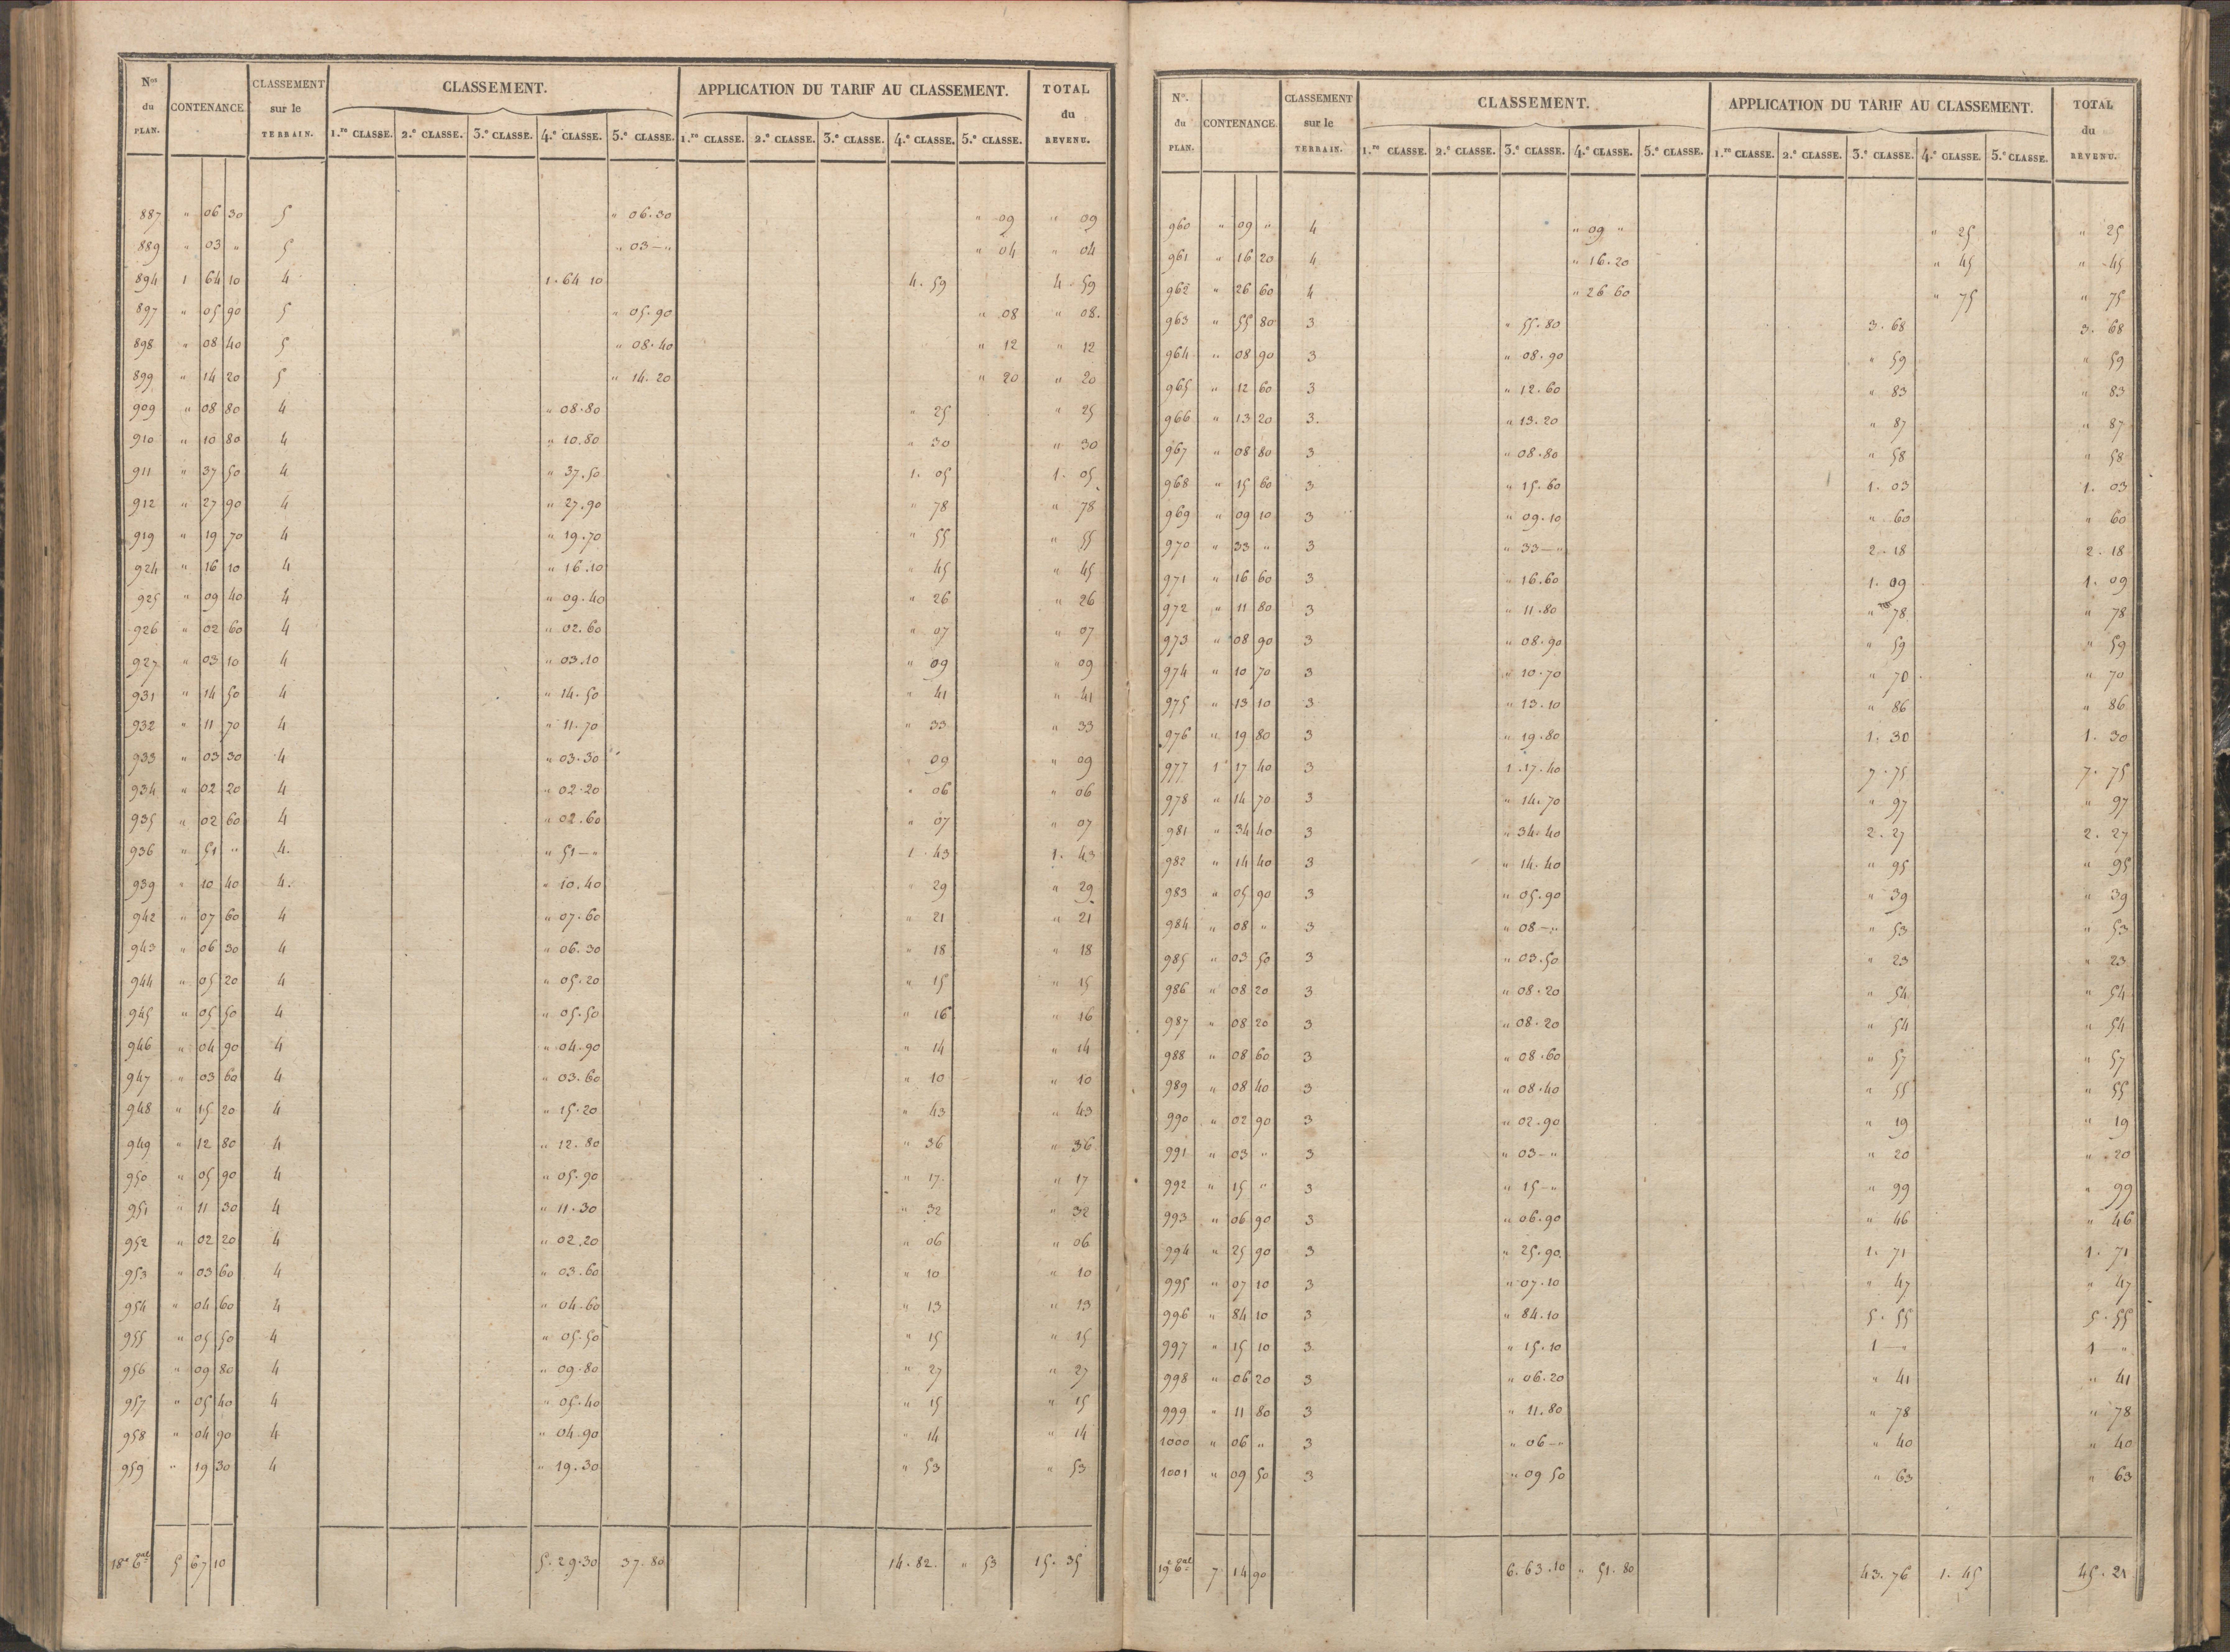 Nos du PLAN. CONTENANCE CLASSEMENT sur le TERRAIN. CLASSEMENT. APPLICATION DU TARIF AU CLASSEMENT. TOTAL du REVENU.
1.re CLASSE. 2.e CLASSE. 3.e CLASSE. 4.e CLASSE. 5.e CLASSE. 1.re CLASSE. 2.e CLASSE. 3.e CLASSE. 4.e CLASSE. 5.e CLASSE.
887 " 06 30 5 " 06.30 " 09 " 09
889 " 03 " 5 " 03—" " 04 " 04
894 1 64 10 4 1.64 10 4.59 4.59
897 " 05 90 5 " 05.90 " 08 " 08.
898 " 08 40 5 " 08.40 " 12 " 12
899 " 14 20 5 " 14.20 " 20 " 20
909 " 08 80 4 " 08.80 " 25 " 25
910 " 10 80 4 " 10.80 " 30 " 30
911 " 37 50 4 " 37.50 1.05 1.05
912 " 27 90 4 " 27.90 " 78 " 78
919 " 19 70 4 " 19.70 " 55 " 55
924 " 16 10 4 " 16.10 " 45 " 45
925 " 09 40 4 " 09.40 " 26 " 26
926 " 02 60 4 " 02.60 " 07 " 07
927 " 03 10 4 " 03.10 " 09 " 09
931 " 14 50 4 " 14.50 " 41 " 41
932 " 11 70 4 " 11.70 " 33 " 33
933 " 03 30 4 " 03.30 " 09 " 09
934 " 02 20 4 " 02.20 " 06 " 06
935 " 02 60 4 " 02.60 " 07 " 07
936 " 51 " 4. " 51—" 1.43 1.43
939 " 10 40 4. " 10.40 " 29 " 29
942 " 07 60 4 " 07.60 " 21 " 21
943 " 06 30 4 " 06.30 " 18 " 18
944 " 05 20 4 " 05.20 " 15 " 15
945 " 05 50 4 " 05.50 " 16 " 16
946 " 04 90 4 " 04.90 " 14 " 14
947 " 03 60 4 " 03.60 " 10 " 10
948 " 15 20 4 " 15.20 " 43 " 43
949 " 12 80 4 " 12.80 " 36 " 36
950 " 05 90 4 " 05.90 " 17 " 17
951 " 11 30 4 " 11.30 " 32 " 32
952 " 02 20 4 " 02.20 " 06 " 06
953 " 03 60 4 " 03.60 " 10 " 10
954 " 04 60 4 " 04.60 " 13 " 13
955 " 05 50 4 " 05.50 " 15 " 15
956 " 09 80 4 " 09.80 " 27 " 27
957 " 05 40 4 " 05.40 " 15 " 15
958 " 04 90 4 " 04.90 " 14 " 14
959 " 19 30 4 " 19.30 " 53 " 53
5 67 10 5.29.30 37.80 14.82. " 53 15.35
No. du PLAN. CONTENANCE. CLASSEMENT sur le TERRAIN. CLASSEMENT. APPLICATION DU TARIF AU CLASSEMENT. TOTAL du REVENU.
1.re CLASSE. 2.e CLASSE. 3.e CLASSE. 4.e CLASSE. 5.e CLASSE. 1.re CLASSE. 2.e CLASSE. 3.e CLASSE. 4.e CLASSE. 5.e CLASSE.
960 " 09 " 4 " 09 " " 25 " 25
961 " 16 20 4 " 16.20 " 45 " 45
962 " 26 60 4 " 26 60 " 75 " 75
963 " 55 80 3 " 55.80 3.68 3.68
964 " 08 90 3 " 08.90 " 59 " 59
965 " 12 60 3 " 12.60 " 83 " 83
966 " 13 20 3. " 13.20 " 87 " 87
967 " 08 80 3 " 08.80 " 58 " 58
968 " 15 60 3 " 15.60 1.03 1.03
969 " 09 10 3 " 09.10 " 60 " 60
970 " 33 " 3 " 33—" 2.18 2.18
971 " 16 60 3 " 16.60 1.09 1.09
972 " 11 80 3 " 11.80 " 78 " 78
973 " 08 90 3 " 08.90 " 59 " 59
974 " 10 70 3 " 10.70 " 70 " 70
975 " 13 10 3 " 13.10 " 86 " 86
976 " 19 80 3 " 19.80 1.30 1.30
977 1 17 40 3 1.17.40 7.75 7.75
978 " 14 70 3 " 14.70 " 97 " 97
981 " 34 40 3 " 34.40 2.27 2.27
982 " 14 40 3 " 14.40 " 95 " 95
983 " 05 90 3 " 05.90 " 39 " 39
984 " 08 " 3 " 08—" " 53 " 53
985 " 03 50 3 " 03.50 " 23 " 23
986 " 08 20 3 " 08.20 " 54 " 54
987 " 08 20 3 " 08.20 " 54 " 54
988 " 08 60 3 " 08.60 " 57 " 57
989 " 08 40 3 " 08.40 " 55 " 55
990 " 02 90 3 " 02.90 " 19 " 19
991 " 03 " 3 " 03—" " 20 " 20
992 " 15 " 3 " 15—" " 99 " 99
993 " 06 90 3 " 06.90 " 46 " 46
994 " 25 90 3 " 25.90 1.71 1.71
995 " 07 10 3 " 07.10 " 47 " 47
996 " 84 10 3 " 84.10 5.55 5.55
997 " 15 10 3 " 15.10 1—" 1—"
998 " 06 20 3 " 06.20 " 41 " 41
999 " 11 80 3 " 11.80 " 78 " 78
1000 " 06 " 3 " 06—" " 40 " 40
1001 " 09 50 3 " 09 50 " 63 " 63
7 14 90 6.63.10 " 51.80 43.76 1.45 45.21